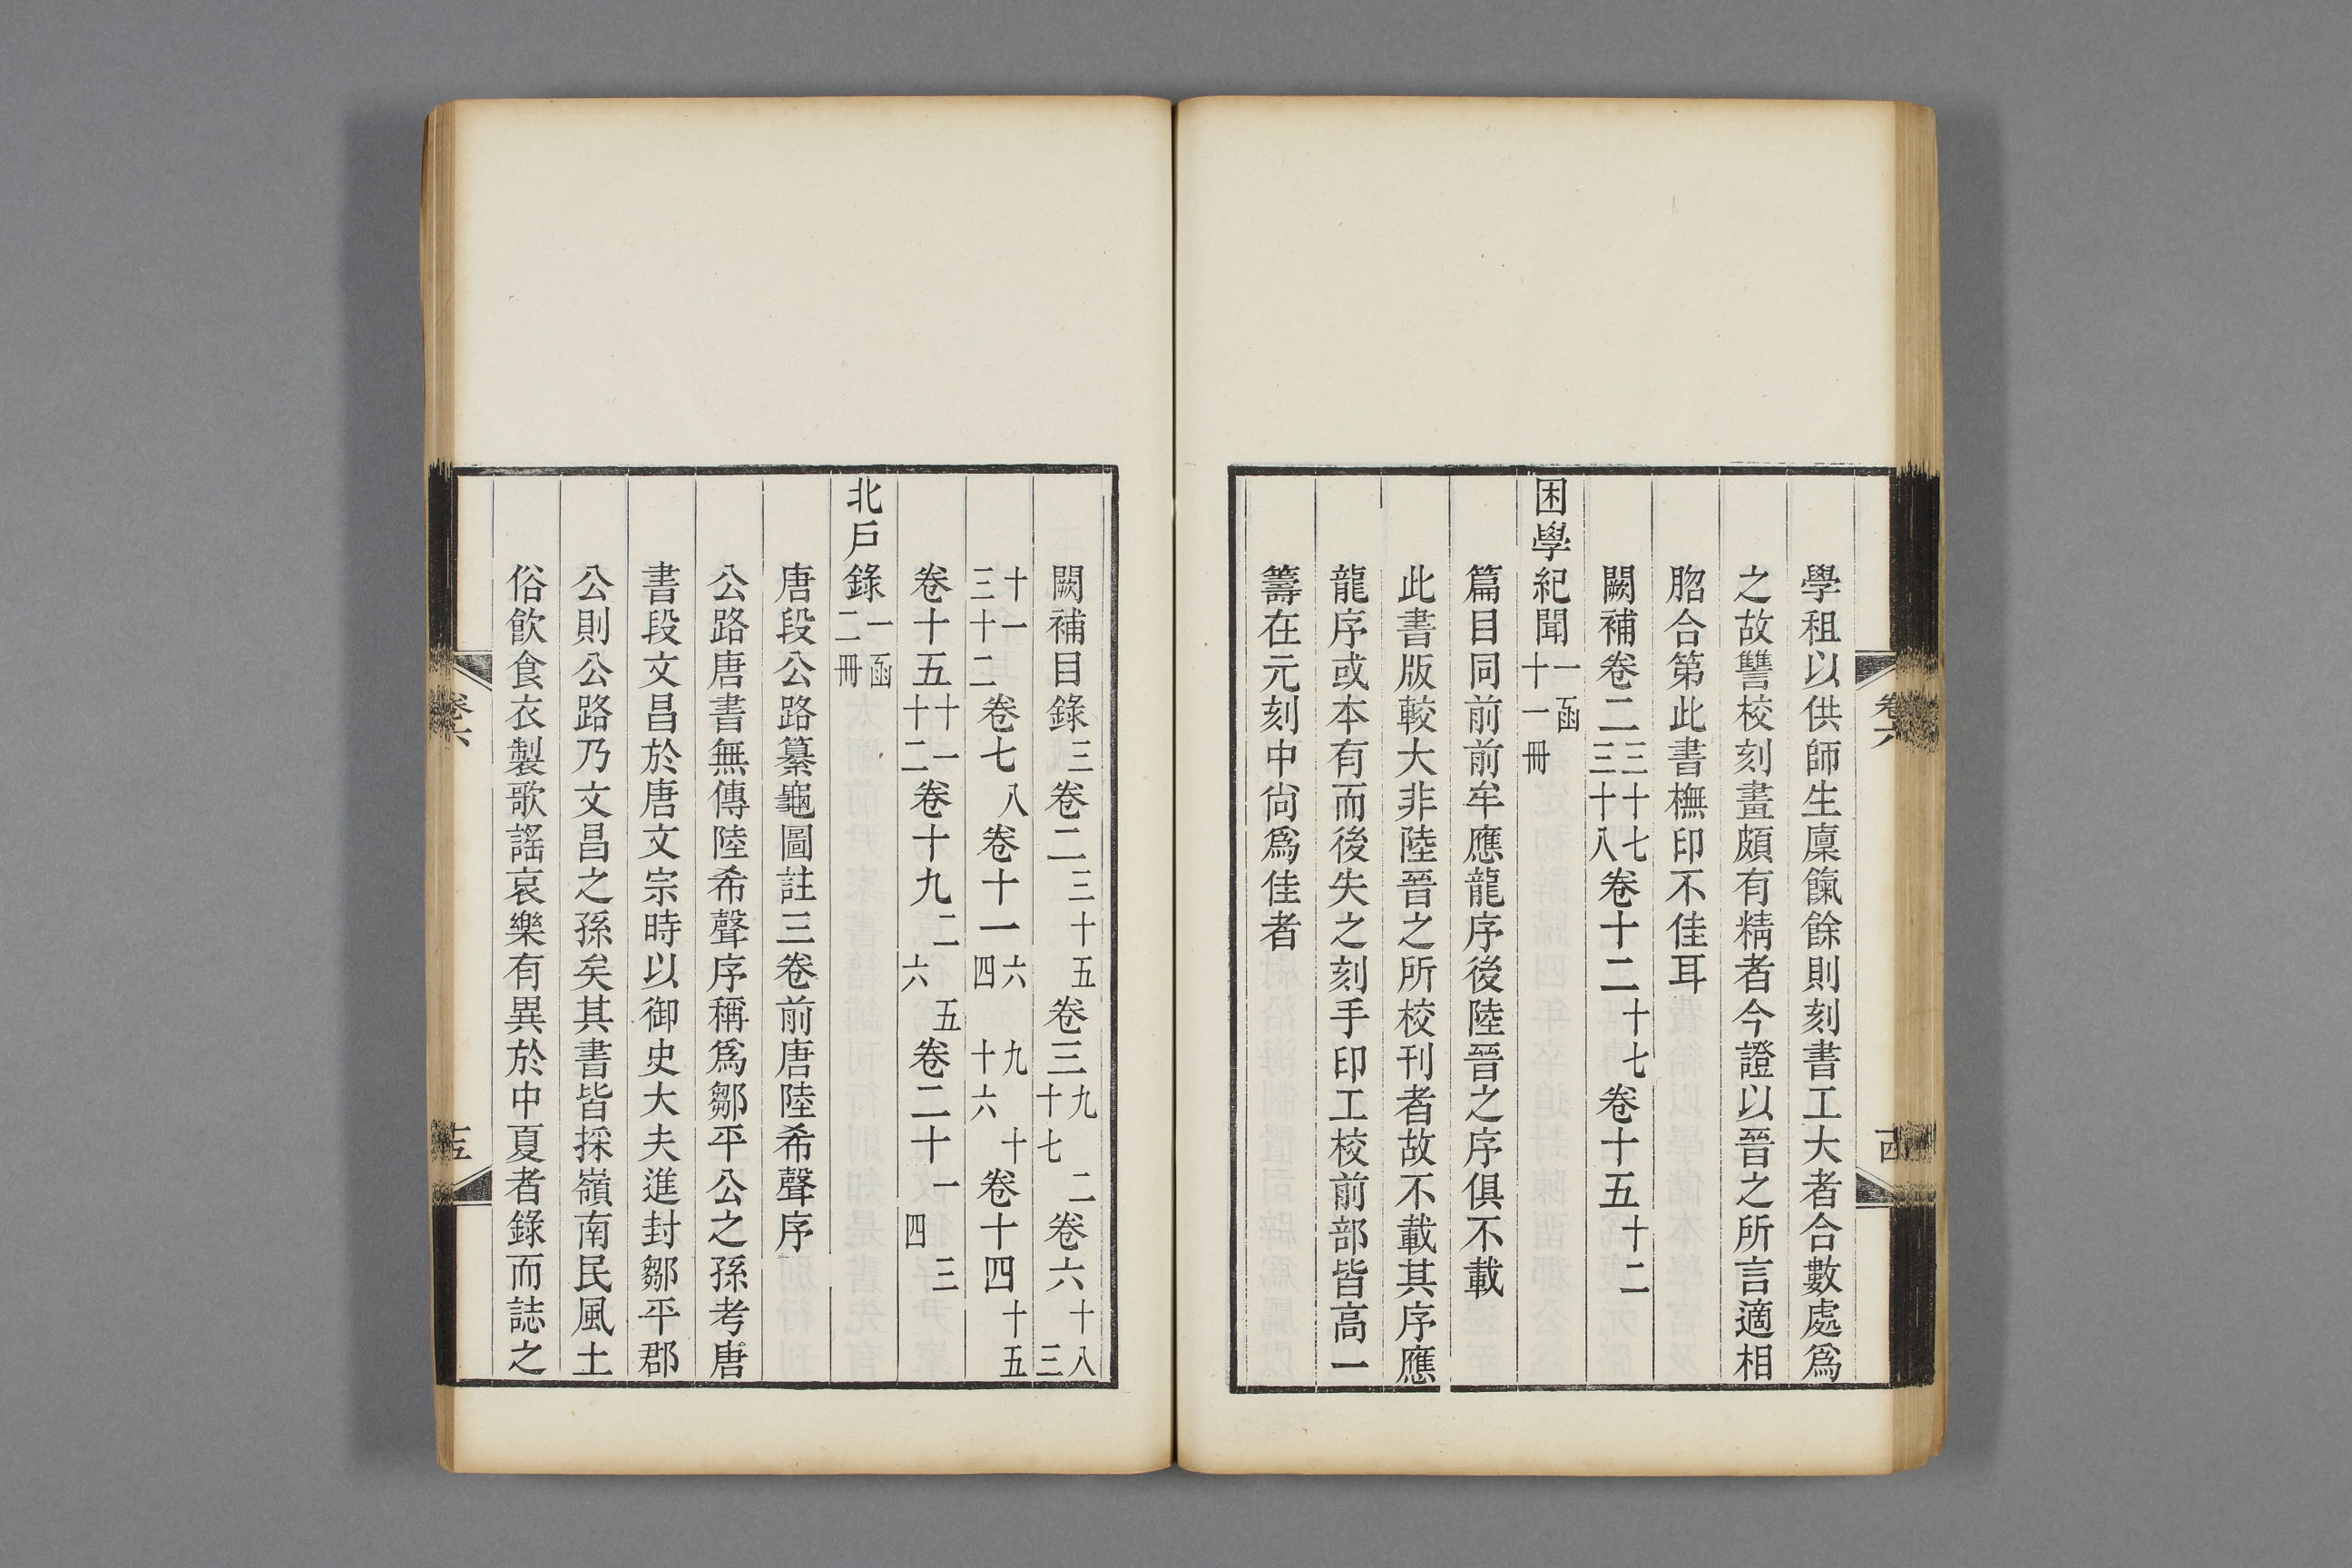 學租以供師生廩餼餘則刻書工大者合數處爲
之故讐校刻畫頗有精者今證以晉之所言適相
脗合第此書橅印不佳耳
闕補卷二三十七三十八卷十二十七卷十五十二
困學紀聞一函十一冊
篇目同前前牟應龍序後陸晉之序俱不載
此書版較大非陸晉之所校刊者故不載其序應
龍序或本有而後失之刻手印工校前部皆高一
籌在元刻中尚爲佳者
卷六
十四
闕補目錄三卷二三十五卷三九十二十七卷六十八三
十一三十二卷七八卷十一六四九十十六卷十四十五
卷十五十一十二卷十九二五六卷二十一三四
北戶錄一函二冊
唐段公路纂龜圖註三卷前唐陸希聲序
公路唐書無傳陸希聲序稱爲鄒平公之孫考唐
書段文昌於唐文宗時以御史大夫進封鄒平郡
公則公路乃文昌之孫矣其書皆採嶺南民風土
俗飲食衣製歌謠哀樂有異於中夏者錄而誌之
卷六
十五